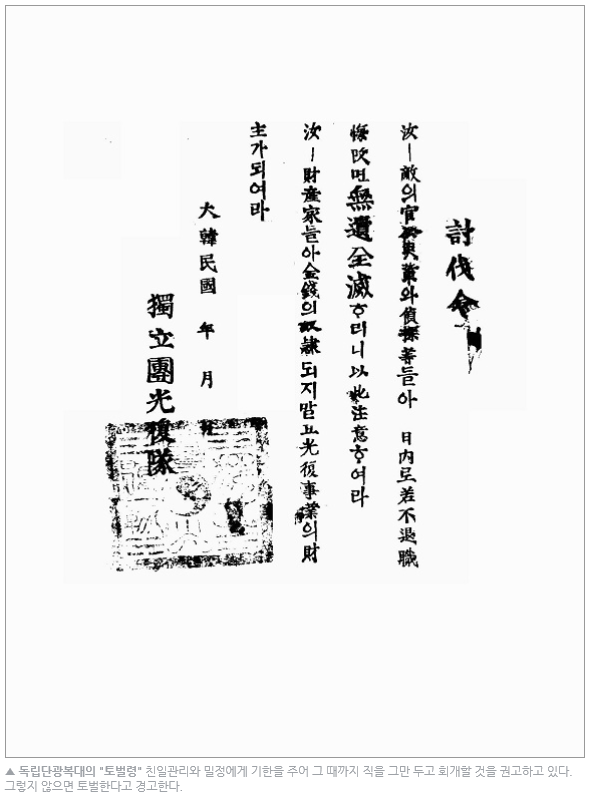 討伐令
汝ㅣ敵의官 吏黨와偵探 들아 日內로若不退職
悔改면無遺全滅ᄒᆞ리니以此注意ᄒᆞ여라
汝ㅣ財産家들아金錢의奴隷되지말고光復事業의財
主가되여라
大韓民國 年 月
獨立團光復隊
▲ 독립단광복대의 "토벌령" 친일관리와 밀정에게 기한을 주어 그 때까지 직을 그만 두고 회개할 것을 권고하고 있다.
그렇지 않으면 토벌한다고 경고한다.